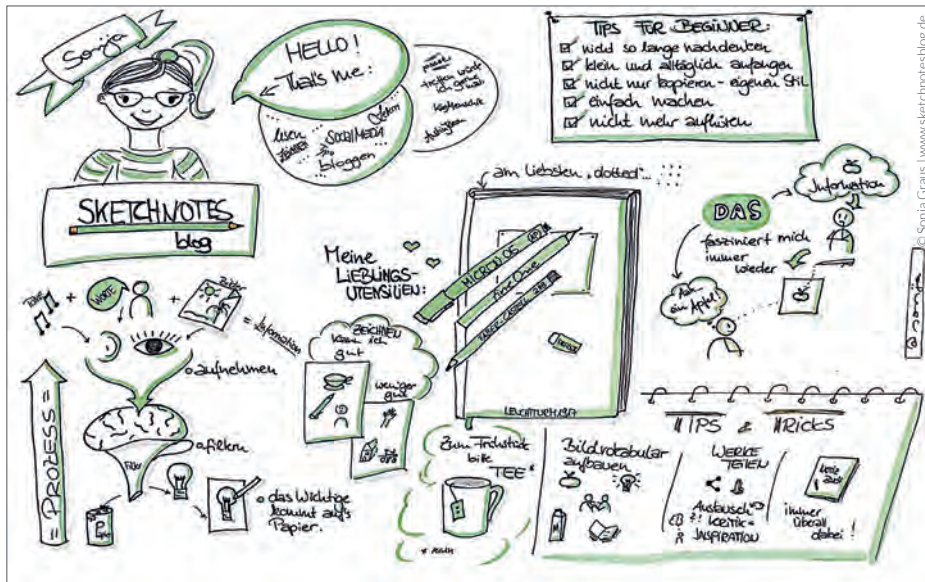 Sonja
HELLO!
That's me:
lesen
SOCIAL MEDIA
bloggen
TIPS FÜR BEGINNER:
nicht so lange nachdenken
klein und alltäglich anfangen
nicht nur kopieren - eigenen Stil
einfach machen
nicht mehr aufhören
© Sonja Graus | www.sketchnotesblog.de
SKETCHNOTES
blog
am liebsten „dotted"...
Meine
LIEBLINGS-
UTENSILIEN:
FABER-CASTELL
LEUCHTTURM 1917
DAS
fasziniert mich
immer
wieder
Information
Aah
ein Apfel!
Töne
+
WORTE
+
Bilder
= Information
aufnehmen
filtern
Filter
das Wichtige
kommt auf's
Papier.
PROZESS
ZEICHNEN
kann ich
gut
weniger
gut
Zum Frühstück
bitte
TEE*
TIPS & TRICKS
Bildvokabular
aufbauen
WERKE
TEILEN
Austausch
Kritik
INSPIRATION
immer
überall
dabei!